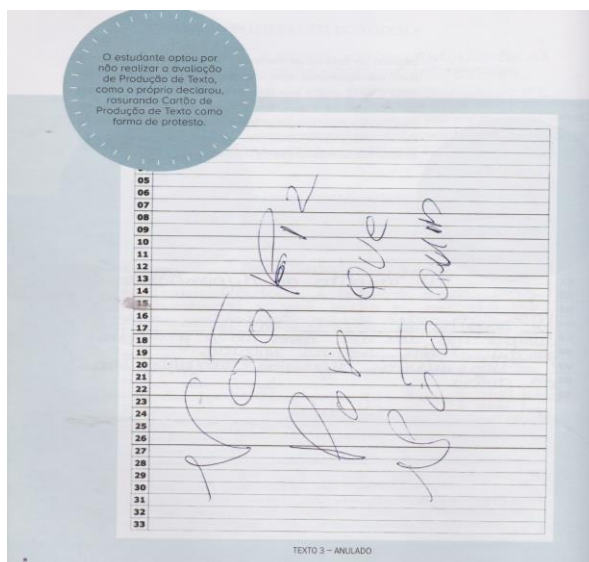 O estudante optou por
não realizar a avaliação
de Produção de Texto,
como o próprio declarou,
rasurando Cartão de
Produção de Texto como
forma de protesto.
05
06
07
08
09
10
11
12
13
14
15
16
17
18
19
20
21
22
23
24
25
26
27
28
29
30
31
32
33
Por que
TEXTO 3 – ANULADO